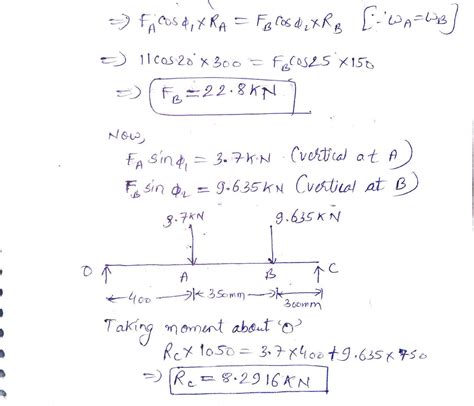 ⇒ F_A cosφ₁ × R_A = F_B cosφ₂ × R_B [∵ ω_A = ω_B]
⇒ 11 cos20° × 300 = F_B cos25° × 150
⇒ F_B = 22.8 KN
Now,
F_A sin φ₁ = 3.7 KN (vertical at A)
F_B sin φ₂ = 9.635 KN (vertical at B)
3.7KN 9.635 KN
O A B C
400 350mm 300mm
Taking moment about 'O'
R_C × 1050 = 3.7 × 400 + 9.635 × 750
⇒ R_C = 8.2916 KN